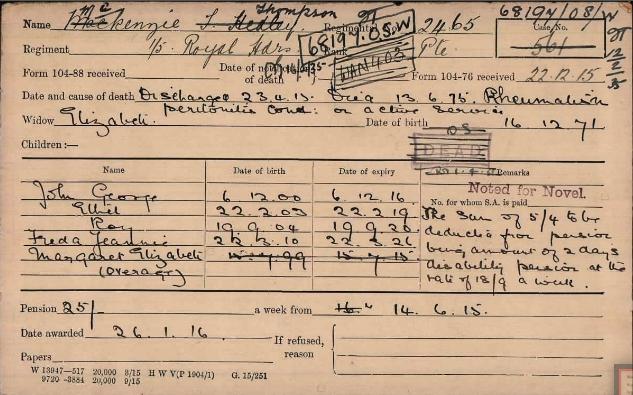 Thompson
Name Mackennie T. Hedley Regimental No. 2465 68194/08/W
Regiment 1/5 Royal Rank Pte Case No. 561
68194.O.S.W
Form 104-88 received Date of of death JAN 403 Form 104-76 received 22.12.15
Date and cause of death Discharged 23.4.15. Died 13.6.15. Rheumatism
peritonitis Cond: on active service
Widow Elizabeth. Date of birth 16.12.71
Children:—
DEAD
Name Date of birth Date of expiry Remarks
Noted for Novel.
No. for whom S.A. is paid
John George 6.12.00 6.12.16
Ethel 22.2.03 22.2.19
Roy 19.9.04 19.9.20
Freda Jeannie 22.3.10 22.3.26
Margaret Elizabeth 15.7.99 15.7.15
(overage)
The sum of 5/4 to be
deducted from pension
being amount of 2 days
disability pension at the
rate of 18/9 a week.
Pension 25/- a week from 14.6.15.
Date awarded 26.1.16. If refused,
reason
Papers
W 13947—517 20,000 8/15 H W V(P 1904/1) G. 15/251
9720 -3884 20,000 9/15